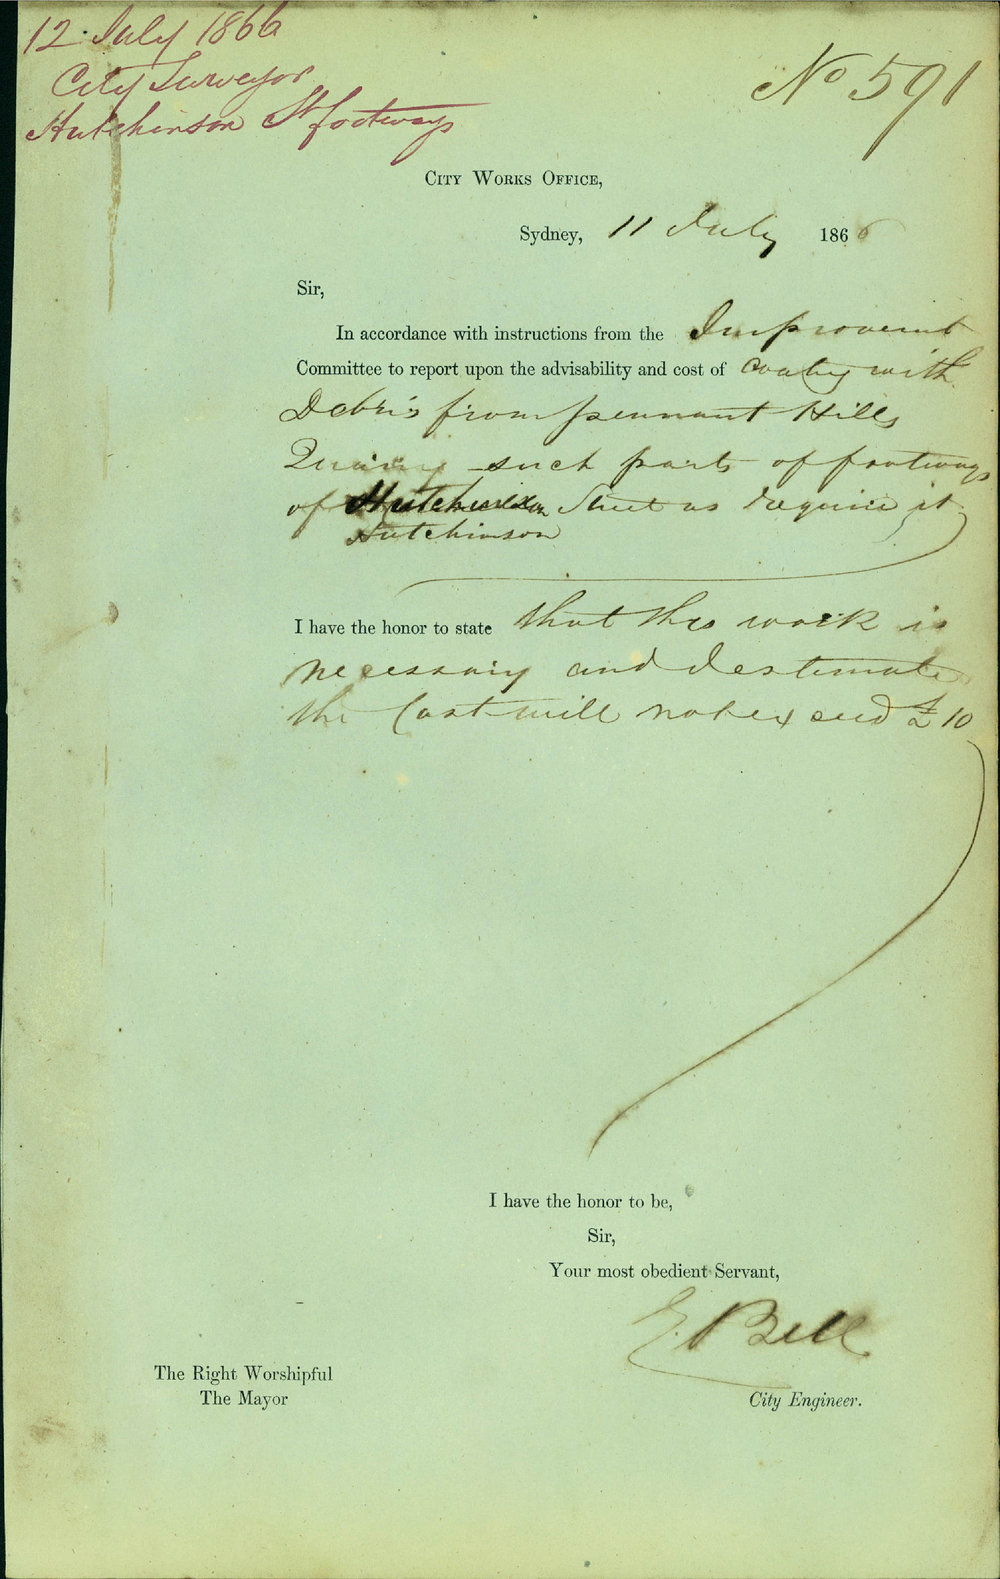 12 July 1866
City Surveyor
Hutchinson St footways
No 591
City Works Office,
Sydney, 11 July 1866
Sir,
In accordance with instructions from the Improvemt
Committee to report upon the advisability and cost of coating with
Debris from pennant Hills
Quarry such parts of footways
of Hutchinson Street as require it
Hutchinson
I have the honor to state that this work is
necessary and I estimate
the Cost will not exceed £10
I have the honor to be,
Sir,
Your most obedient Servant,
E. Bell
The Right Worshipful
The Mayor
City Engineer.